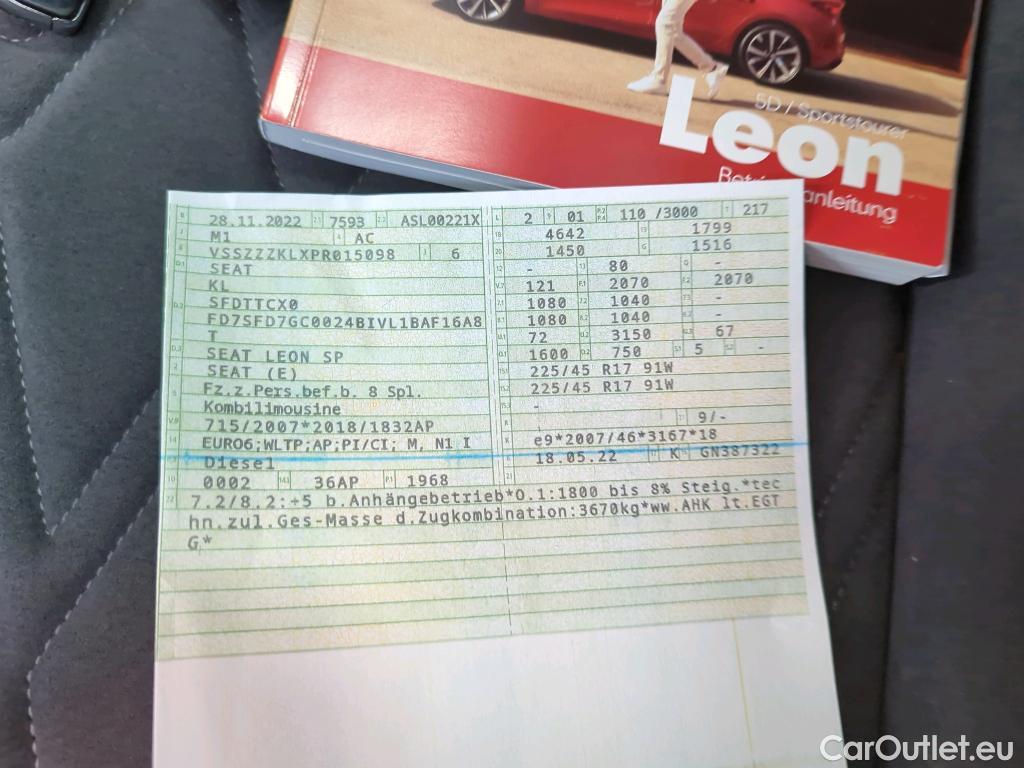 5D / Sportstourer
Leon
anleitung
28.11.2022 2.1 7593 2.2 ASL00221X
M1 AC
VSSZZZKLXPR015098 6
SEAT
KL
SFDTTCX0
FD7SFD7GC0024BIVL1BAF16A8
T
SEAT LEON SP
SEAT (E)
Fz.z.Pers.bef.b. 8 Spl.
Kombilimousine
715/2007*2018/1832AP
EURO6;WLTP;AP;PI/CI; M, N1 I
Diesel
0002 36AP 1968
L 2 9 01 P.2 P.4 110 /3000 T 217
18 4642 19 1799
20 1450 G 1516
12 - 13 80 Q -
V.7 121 F.1 2070 F.2 2070
7.1 1080 7.2 1040 7.3 -
8.1 1080 8.2 1040 8.3 -
U.1 72 U.2 3150 U.3 67
O.1 1600 O.2 750 S.1 5 S.2 -
15.1 225/45 R17 91W
15.2 225/45 R17 91W
15.3 -
R 11 9/-
K e9*2007/46*3167*18
6 18.05.22 17 K 16 GN387322
21
22 7.2/8.2:+5 b.Anhängebetrieb*O.1:1800 bis 8% Steig.*tec
hn.zul.Ges-Masse d.Zugkombination:3670kg*ww.AHK lt.EGT
G*
CarOutlet.eu